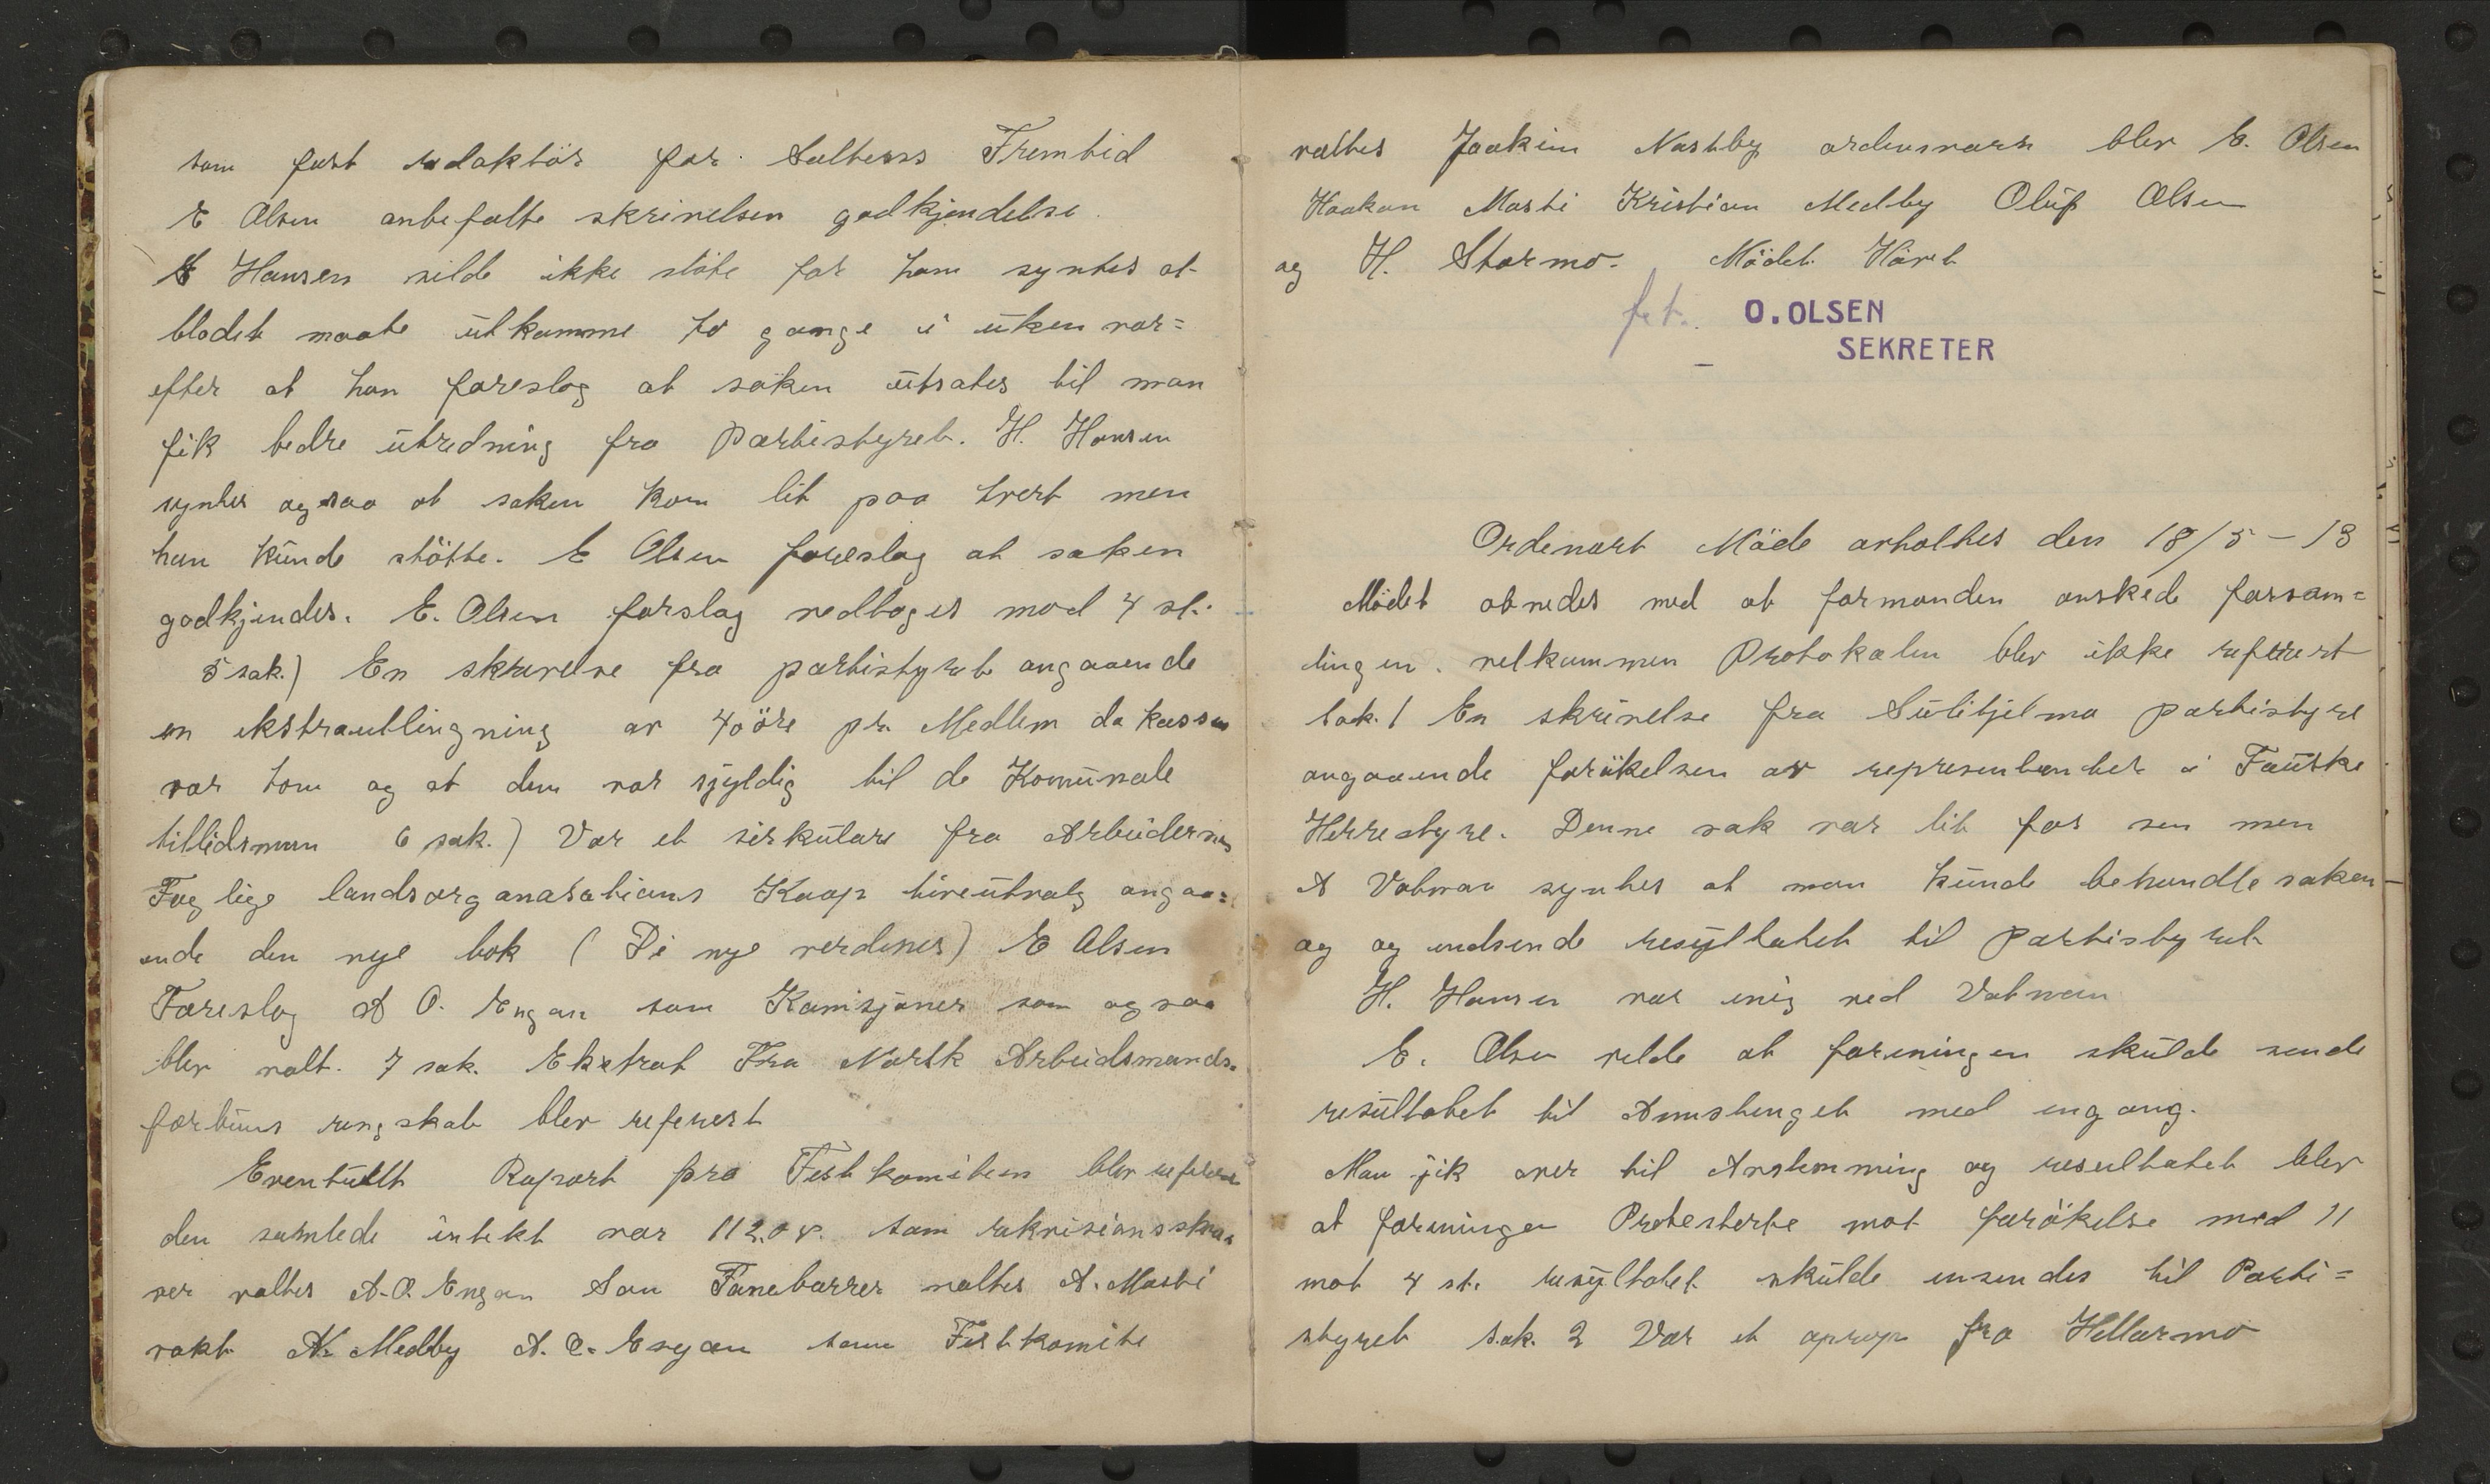 som fast redaktör for Saltens Fremtid
E Olsen anbefalte skrivelsen godkjendelse.
E Hansen vilde ikke støte for ham syntes at
bladet maate utkomme to gange i uken vor=
efter at han foreslog at saken utsates til man
fik bedre utredning fra Partistyret. H. Hansen
syntes ogsaa at saken kom lit paa tvert men
han kunde støtte. E Olsen foreslog at saken
godkjendes. E. Olsen forslag vedtoges mod 4 st.
5 sak.) En skrivelse fra partistyret angaaende
en ekstrautlingning av 40 öre pr. Medlem da kassen
var tom og at dem var sjyldig til de Komunale
tillidsmen 6 sak.) Var et sirkulare fra Arbeidernes
Faglige landsorganasations Kooptireutvalg angaa=
ende den nye bok (Di nye verdener) E Olsen
Foreslog A O. Engan som Komisjoner som ogsaa
blev valt. 7 sak. Ekstrat Fra Norsk Arbeidsmands=
forbuns rengskab blev referert
Eventuellt Raport fra Festkomiteen blev referert
den samlede intekt var 112.08. som rekvisionsskri
ver valtes A.O. Engan Som Fanebærer valtes A. Mosti
vakt N. Medby A. O. Engan som Festkomite
valtes Joakim Nastby ordensvern blev E. Olsen
Haakon Mosti Kristian Medby Oluf Olsen
og H. Stormo. Mödet Hävet
O. OLSEN
SEKRETER
Ordenært Möde avholdtes den 18/5-13
Mödet abnedes med at formanden önskede forsam=
lingen velkommen Protokolen blev ikke referert
Sak. 1 En skrivelse fra Sulitjelma partistyre
angaaende forökelsen av representanter i Fauske
Herrestyre. Denne sak var lit for sen men
A Vatman syntes at man kunde behandle saken
og og indsende resyltatet til Partistyret
H. Hansen var enig ved Vatman
E. Olsen vilde at foreningen skulde sende
resultatet til Amstinget med engang.
Man gik over til Avstemming og resultatet blev
at foreningen Protesterte mot forökelse med 11
mot 4 st. resyltatet skulde ensendes til Parti=
styret Sak. 2 Var et oprop fra Hellarmo